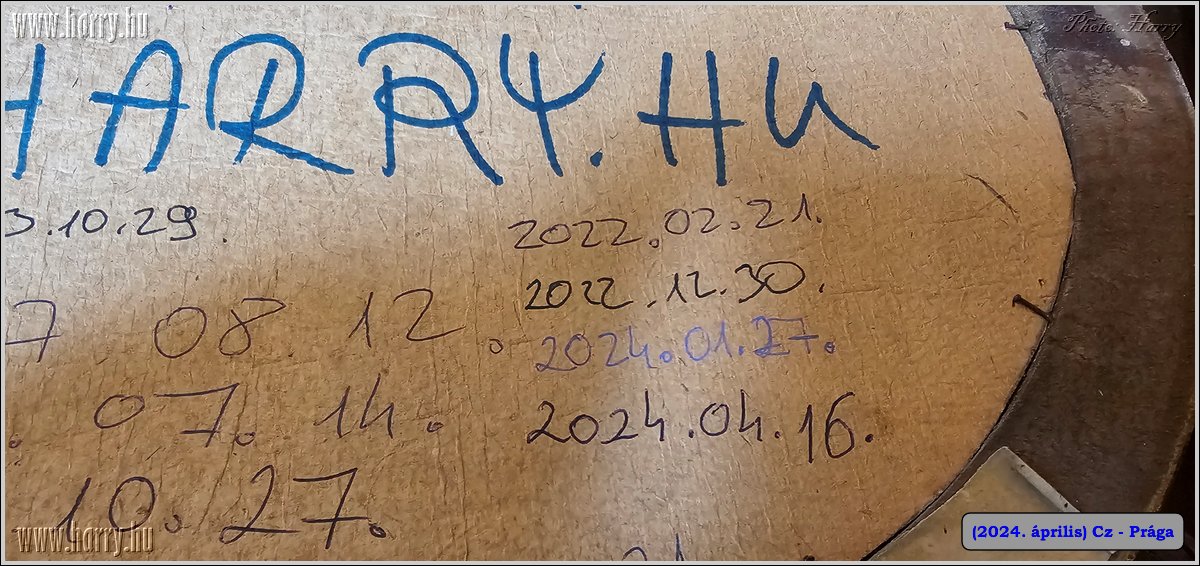 www.horry.hu
Photo: Harry
HARRY.HU
3.10.29.
2022.02.21.
2022.12.30.
7 08 12.
2024.01.27.
. 07. 14.
2024.04.16.
10. 27.
www.horry.hu
(2024. április) Cz - Prága